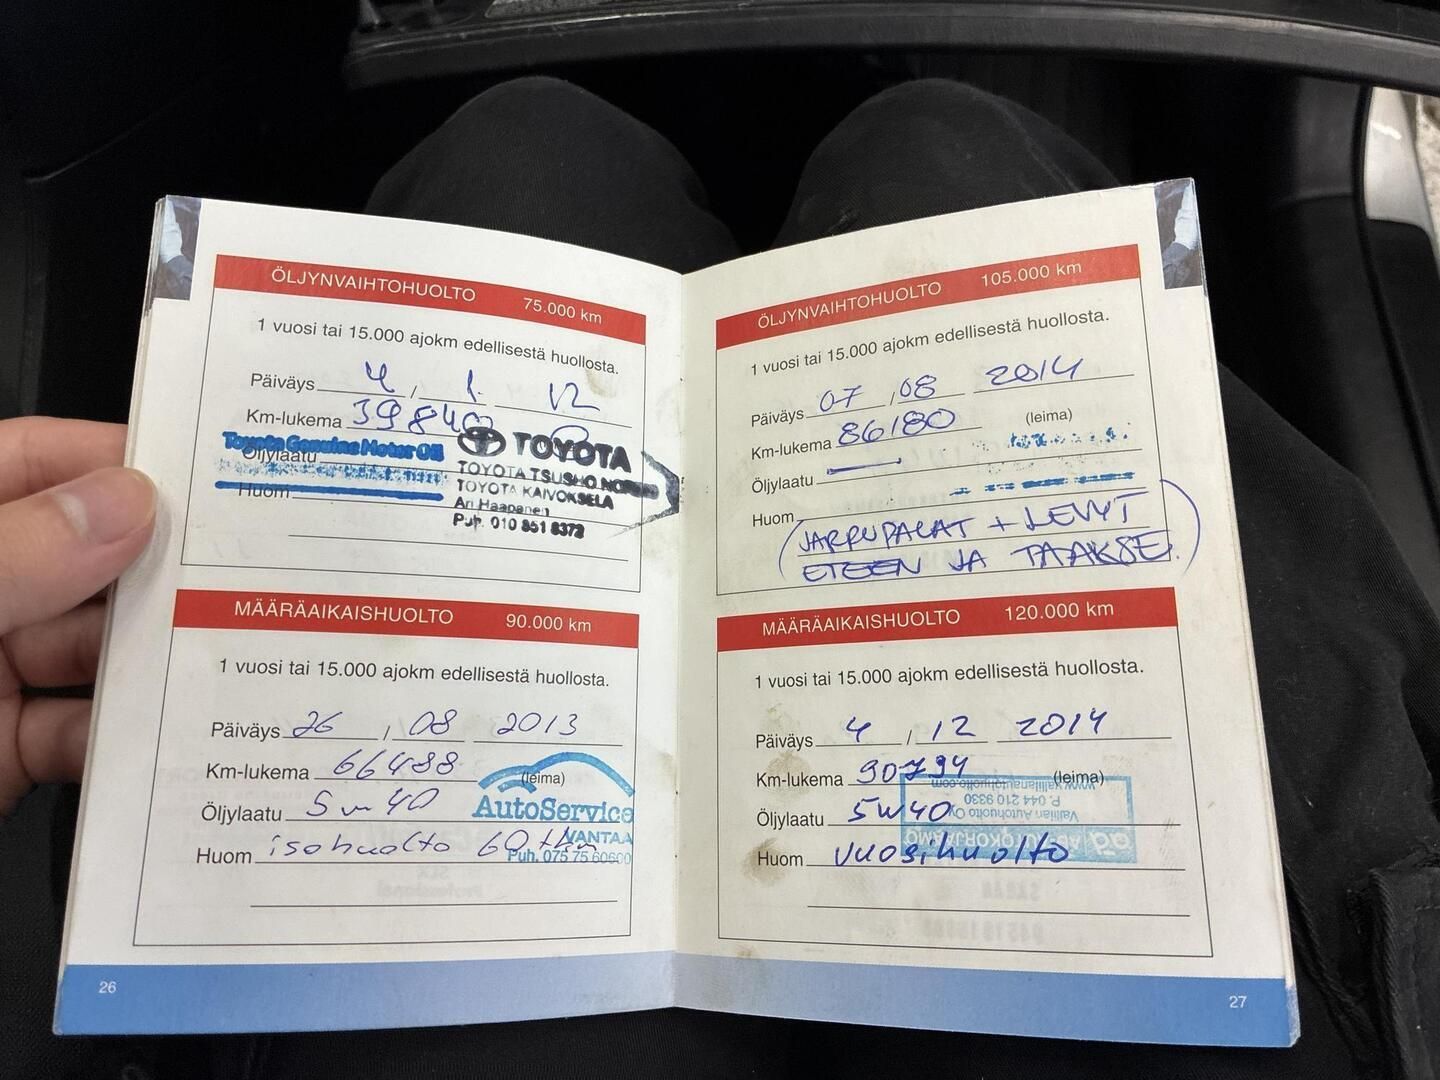 ÖLJYNVAIHTOHUOLTO 75.000 km
1 vuosi tai 15.000 ajokm edellisestä huollosta.
Päiväys 4 / 1. 12
Km-lukema 39840
Toyota Genuine Motor Oil
Öljylaatu
Huom
TOYOTA
TOYOTA TSUSHO
TOYOTA KAIVOKSELA
Ari Haapanen
Puh. 010 851 8372
MÄÄRÄAIKAISHUOLTO 90.000 km
1 vuosi tai 15.000 ajokm edellisestä huollosta.
Päiväys 26 / 08 2013
Km-lukema 66488 (leima)
Öljylaatu 5w40
AutoService
VANTAA
Huom isohuolto 60 tkm
Puh. 075 75 60600
26
ÖLJYNVAIHTOHUOLTO 105.000 km
1 vuosi tai 15.000 ajokm edellisestä huollosta.
Päiväys 07 / 08 2014
Km-lukema 86180 (leima)
Öljylaatu
Huom
(JARRUPALAT + LEVYT
ETEEN JA TAAKSE.)
MÄÄRÄAIKAISHUOLTO 120.000 km
1 vuosi tai 15.000 ajokm edellisestä huollosta.
Päiväys 4 / 12 2014
Km-lukema 90794 (leima)
Öljylaatu 5W40
Huom vuosihuolto
AUTOKORJAAMO
Vallilan Autohuolto Oy
P. 044 210 9330
www.vallilanautohuolto.com
27